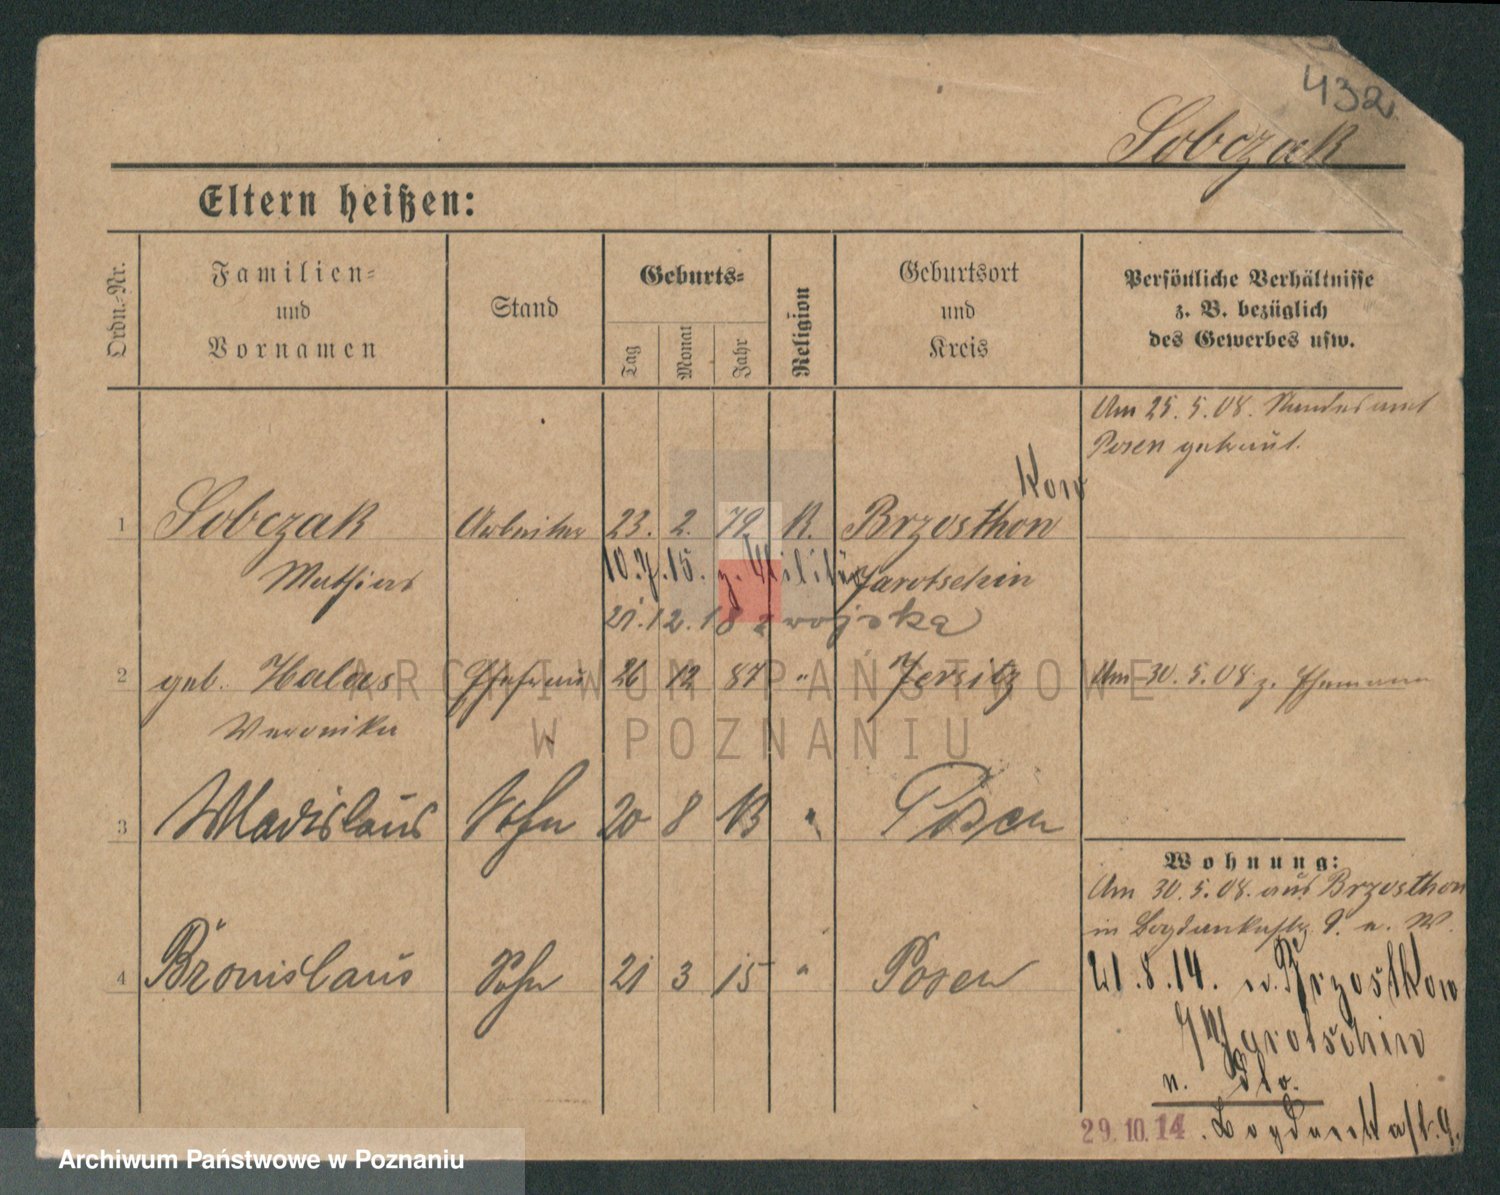 432
Sobczak
Eltern heißen:
Ordn.-Nr.
Familien-
und
Vornamen
Stand
Geburts-
Tag
Monat
Jahr
Religion
Geburtsort
und
Kreis
Persönliche Verhältnisse
z. B. bezüglich
des Gewerbes usw.
Am 25. 5. 08. Standesamt
Posen getraut.
Kow
1 Sobczak Arbeiter 23. 2. 79 K. Brzosthon
Mathias Jarotschin
10.7.15. z. Militär
21.12.18 z wojska
2 geb. Halas Ehefrau 26 12 87 " Jersitz Am 30. 5. 08 z. Ehemann
Veronika
ARCHIWUM PAŃSTWOWE
W POZNANIU
3 Wladislaus Sohn 20 8 13 " Posen
Wohnung:
Am 30. 5. 08. aus Brzosthon
in Bogdankastr. 9. a. W.
4 Bronislaus Sohn 21 3 15 " Posen
21.8.14. n. Brzostkow
Jarotschin
n. Abb.
29.10.14 . Bogdankast. 9.
Archiwum Państwowe w Poznaniu